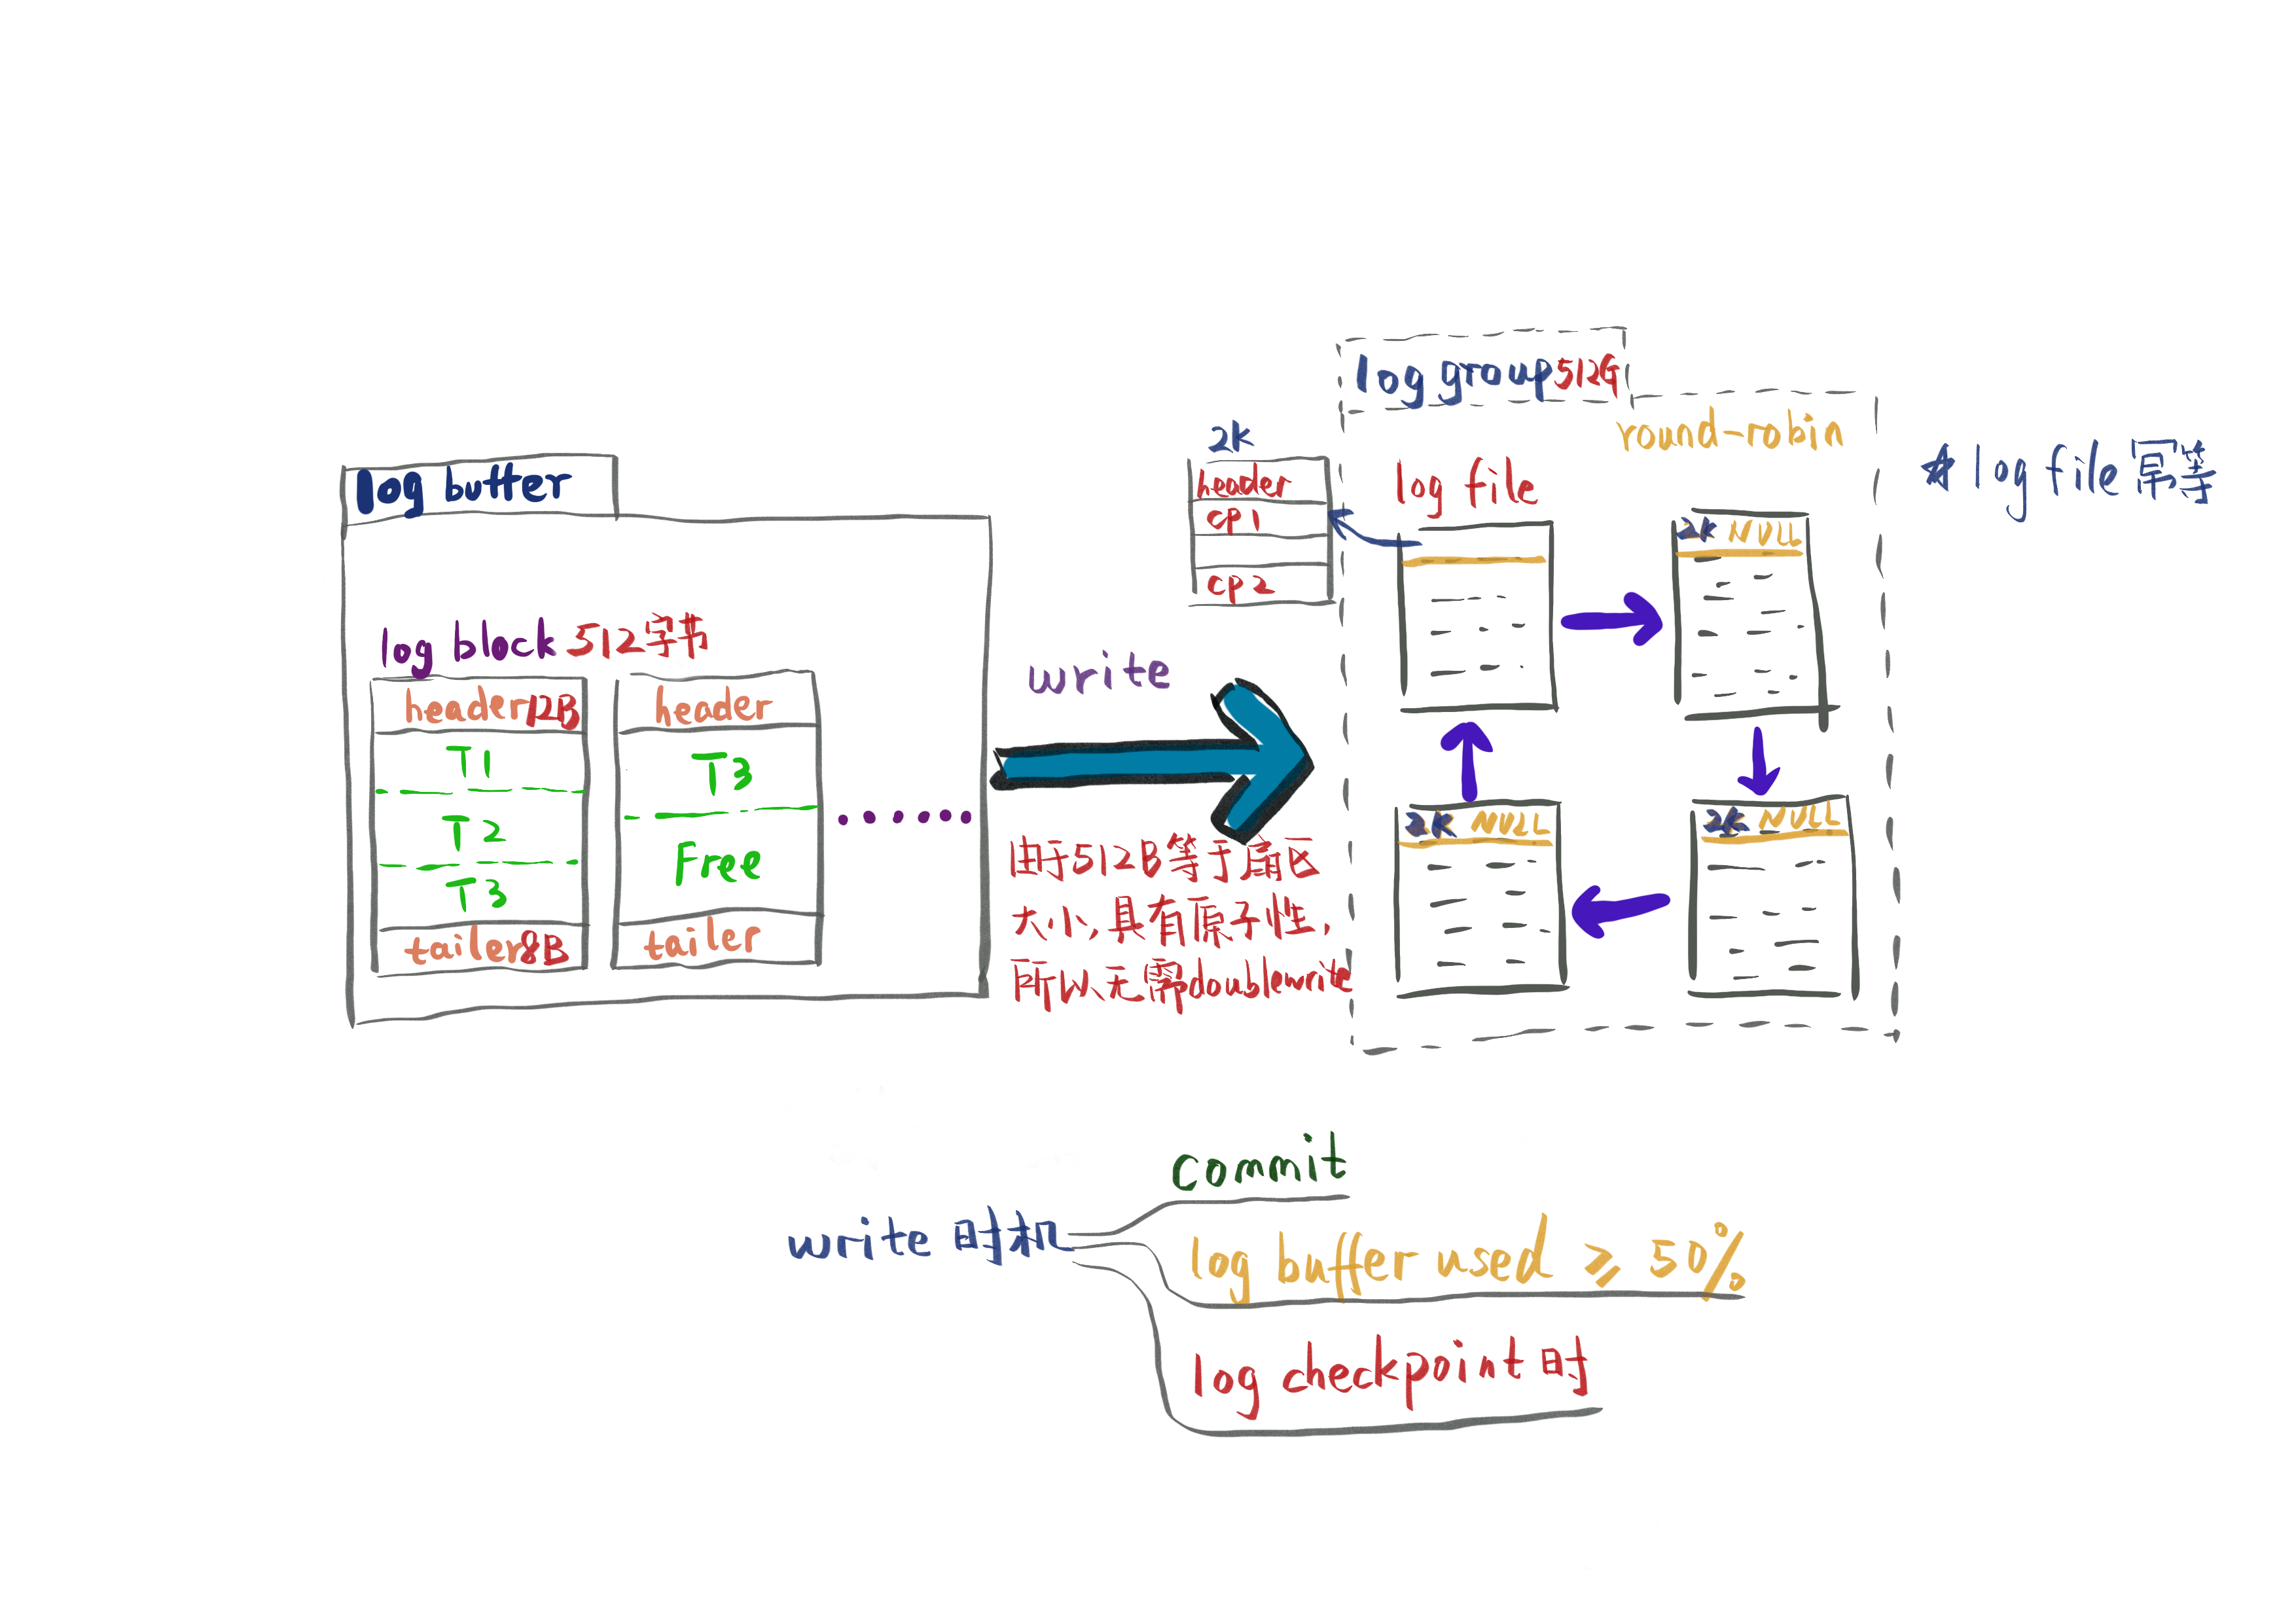 log buffer
log block 512字节
header12B
T1
T2
T3
tailer8B
header
T3
Free
tailer
write
由于512B等于扇区
大小,具有原子性,
所以无需doublewrite
2K
header
cp1
cp2
log group512G
round-robin
log file
2K NULL
2K NULL
2K NULL
* log file 幂等
write 时机
commit
log buffer used ⩾ 50%
log checkpoint 时